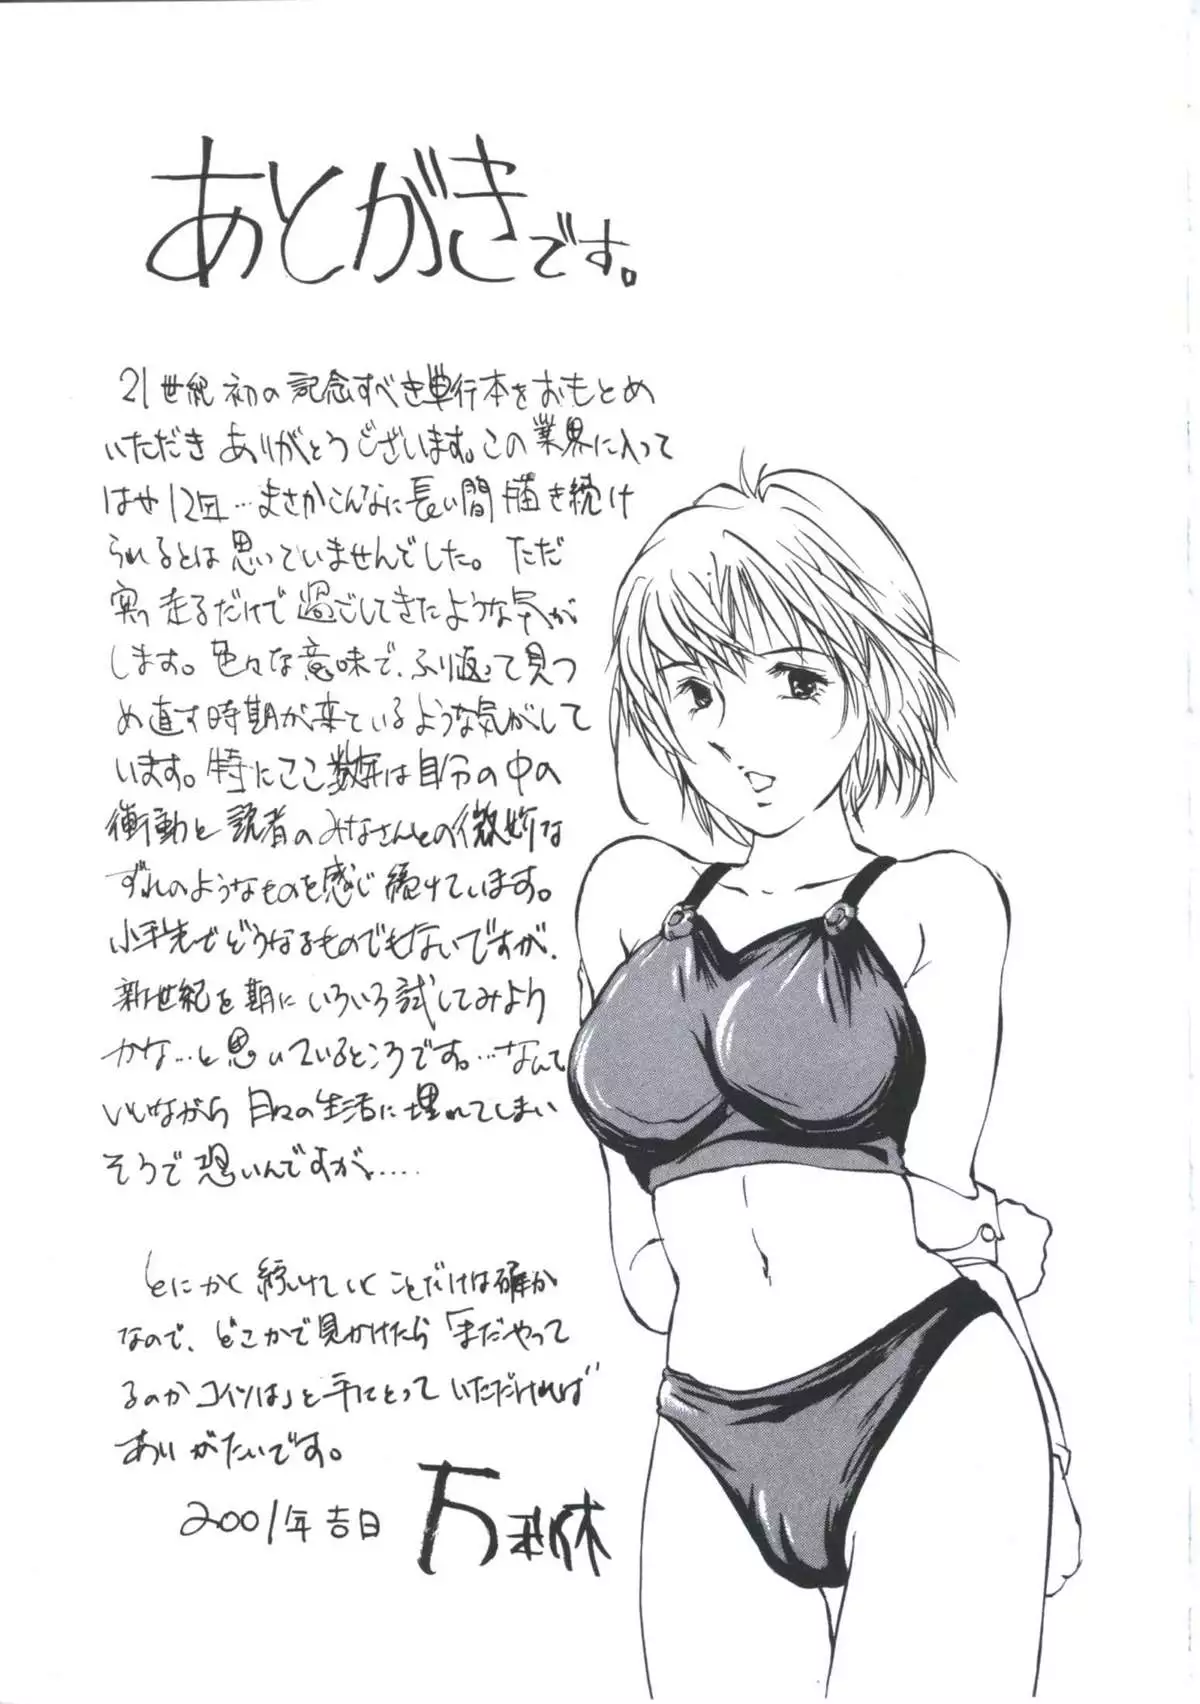 あとがきです。
21世紀初の記念すべき単行本をおもとめ
いただきありがとうございます。この業界に入って
はや12年…まさかこんなに長い間描き続け
られるとは思っていませんでした。ただ
突っ走るだけで過ごしてきたような気が
します。色々な意味で、ふり返って見つ
め直す時期が来ているような気がして
います。特にここ数年は自分の中の
衝動と読者のみなさんとの微妙な
ずれのようなものを感じ続けています。
小手先でどうなるものでもないですが、
新世紀を期にいろいろ試してみよう
かな…と思いているところです。…なんて
いいながら日々の生活に埋れてしまい
そうで恐いんですが……
とにかく続けていくことだけは確か
なので、どこかで見かけたら「まだやって
るのかコイツは」と手にとっていただければ
ありがたいです。
2001年吉日 万利休